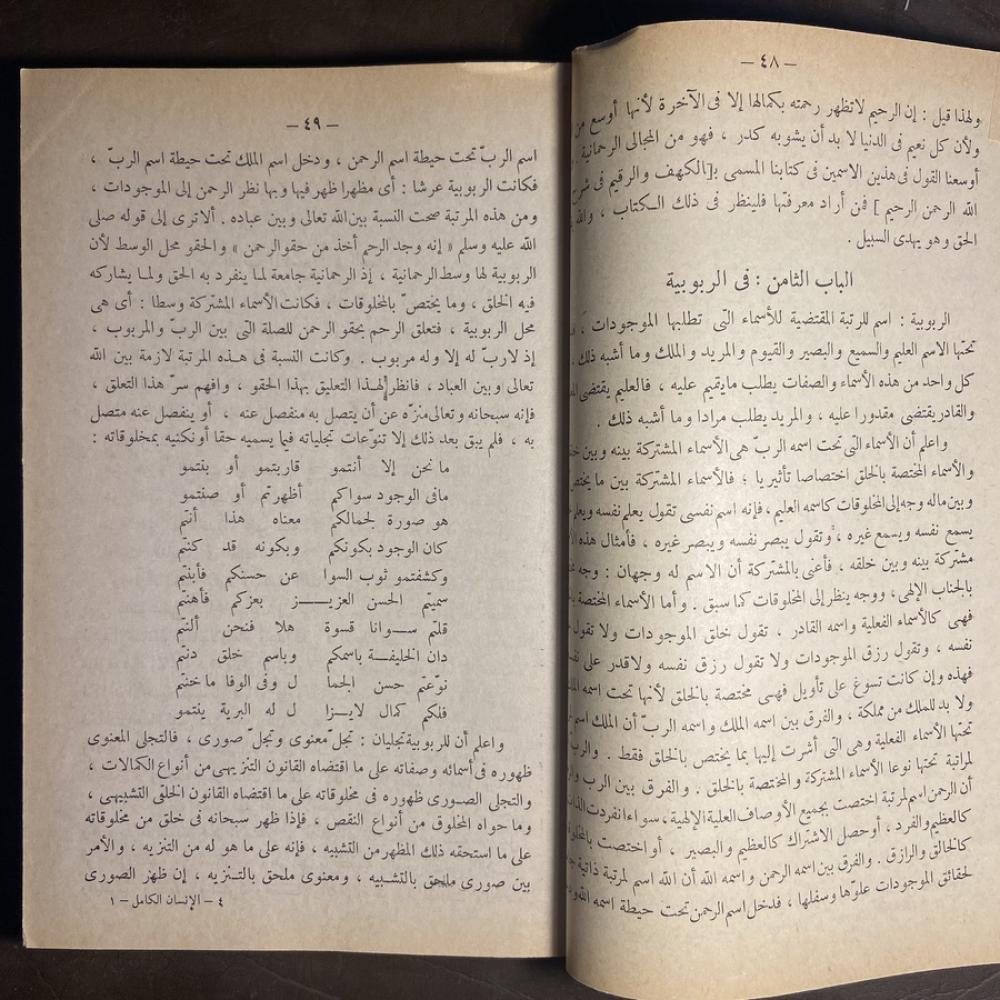 — ٤٨ —
ولهذا قيل : إن الرحيم لاتظهر رحمته بكمالها إلا فى الآخرة لأنها أوسع من
ولأن كل نعيم فى الدنيا لا بد أن يشوبه كدر ، فهو من المجالى الرحمانية .
أوسعنا القول فى هذين الاسمين فى كتابنا المسمى بـ[الكهف والرقيم فى شرح
الله الرحمن الرحيم ] فمن أراد معرفتها فلينظر فى ذلك الكتاب ، والله
الحق وهو يهدى السبيل .
الباب الثامن : فى الربوبية
الربوبية : اسم للمرتبة المقتضية للأسماء التى تطلبها الموجودات ،
تحتها الاسم العليم والسميع والبصير والقيوم والمريد والملك وما أشبه ذلك ،
كل واحد من هذه الأسماء والصفات يطلب مايقيم عليه ، فالعليم يقتضى
والقادر يقتضى مقدورا عليه ، والمريد يطلب مرادا وما أشبه ذلك .
واعلم أن الأسماء التى تحت اسمه الرب هى الأسماء المشتركة بينه وبين
والأسماء المختصة بالخلق اختصاصا تأثيريا ؛ فالأسماء المشتركة بين ما يختص
وبين ماله وجه إلى المخلوقات كاسمه العليم ، فإنه اسم نفسى تقول يعلم نفسه ويعلم
يسمع نفسه ويسمع غيره ، وتقول يبصر نفسه ويبصر غيره ، فأمثال هذه
مشتركة بينه وبين خلقه ، فأعنى بالمشتركة أن الاسم له وجهان : وجه
بالجناب الإلهى ، ووجه ينظر إلى المخلوقات كما سبق . وأما الأسماء المختصة
فهى كالأسماء الفعلية واسمه القادر ، تقول خلق الموجودات ولا تقول
نفسه ، وتقول رزق الموجودات ولا تقول رزق نفسه ولاقدر على
فهذه وإن كانت تسوغ على تأويل فهى مختصة بالخلق لأنها تحت اسمه
ولا بد للملك من مملكة ، والفرق بين اسمه الملك واسمه الربّ أن الملك اسم
تحتها الأسماء الفعلية وهى التى أشرت إليها بما يختص بالخلق فقط . والربّ
لمراتبة تحتها نوعا الأسماء المشتركة والمختصة بالخلق . والفرق بين الرب
أن الرحمن اسم لمرتبة اختصت بجميع الأوصاف العلية الإلهية ، سواء انفردت الذات
كالعظيم والفرد ، أو حصل الاشتراك كالعظيم والبصير ، أو اختصت
كالخالق والرازق . والفرق بين اسمه الرحمن واسمه الله أن الله اسم لمرتبة ذاتية
لحقائق الموجودات علوّها وسفلها ، فدخل اسم الرحمن تحت حيطة اسمه الله
— ٤٩ —
اسم الربّ تحت حيطة اسم الرحمن ، ودخل اسم الملك تحت حيطة اسم الربّ ،
فكانت الربوبية عرشا : أى مظهرا ظهر فيها وبها نظر الرحمن إلى الموجودات ،
ومن هذه المرتبة صحت النسبة بين الله تعالى وبين عباده . ألا ترى إلى قوله صلى
الله عليه وسلم « إنه وجد الرحم أخذ من حقو الرحمن » والحقو محل الوسط لأن
الربوبية لها وسط الرحمانية ، إذ الرحمانية جامعة لما ينفرد به الحق ولما يشاركه
فيه الخلق ، وما يختصّ بالمخلوقات ، فكانت الأسماء المشتركة وسطا : أى هى
محل الربوبية ، فتعلق الرحم بحقو الرحمن للصلة التى بين الربّ والمربوب ،
إذ لاربّ له إلا وله مربوب . وكانت النسبة فى هذه المرتبة لازمة بين الله
تعالى وبين العباد ، فانظر لهذا التعليق بهذا الحقو ، وافهم سرّ هذا التعلق ،
فإنه سبحانه وتعالى منزّه عن أن يتصل به منفصل عنه ، أو ينفصل عنه متصل
به ، فلم يبق بعد ذلك إلا تنوّعات تجلياته فيما يسميه حقا أو نكنيه بمخلوقاته :
ما نحن إلا أنتمو قاربتمو أو بنتمو
مافى الوجود سواكم أظهرتم أو صنتمو
هو صورة لجمالكم معناه هذا أنتم
كان الوجود بكونكم وبكونه قد كنتم
وكشفتمو ثوب السوا عن حسنكم فأبنتم
سميتم الحسن العزيـــز بعزكم فأهنتم
قلتم ســوانا قسوة هلا فنحن ألنتم
دان الخليفــة باسمكم وباسم خلق دنتم
نوّعتم حسن الجما ل وفى الوفا ما خنتم
فلكم كمال لايــزا ل له البرية ينتمو
واعلم أن للربوبية تجليان : تجلّ معنوى وتجلّ صورى ، فالتجلى المعنوى
ظهوره فى أسمائه وصفاته على ما اقتضاه القانون التنزيهى من أنواع الكمالات ،
والتجلى الصورى ظهوره فى مخلوقاته على ما اقتضاه القانون الخلقى التشبيهى ،
وما حواه المخلوق من أنواع النقص ، فإذا ظهر سبحانه فى خلق من مخلوقاته
على ما استحقه ذلك المظهر من التشبيه ، فإنه على ما هو له من التنزيه ، والأمر
بين صورى ملحق بالتشبيه ، ومعنوى ملحق بالتنزيه ، إن ظهر الصورى
٤ — الإنسان الكامل — ١